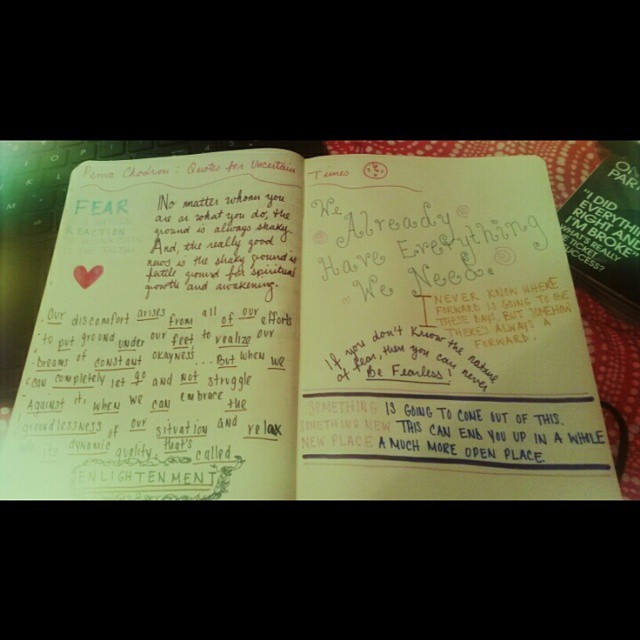 Pema Chodron: Quotes for Uncertain Times
FEAR
REACTION
No matter whom you
are or what you do, the
ground is always shaky.
And, the really good
news is the shaky ground is
fertile ground for spiritual
growth and awakening.
Our discomfort arises from all of our efforts
to put ground under our feet to realize our
Dreams of constant okayness... But when we
can completely let go and not struggle
Against it, when we can embrace the
groundlessness of our situation and relax
its dynamic quality, that's called
ENLIGHTENMENT
We Already
Have Everything
We Need.
I NEVER KNOW WHERE
FORWARD IS GOING TO BE
THESE DAYS. BUT SOMEHOW
THERE'S ALWAYS A
FORWARD.
If you don't know the nature
of fear then you can never
Be Fearless!
SOMETHING IS GOING TO COME OUT OF THIS.
SOMETHING NEW. THIS CAN END YOU UP IN A WHOLE
NEW PLACE A MUCH MORE OPEN PLACE.
I DID
EVERYTHING
RIGHT AND
I'M BROKE
SUCCESS?